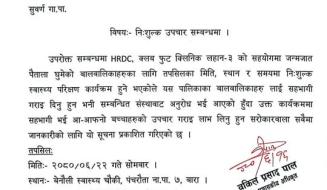 सुवर्ण गा.पा.
विषय:- निःशुल्क उपचार सम्बन्धमा ।
उपरोक्त सम्बन्धमा HRDC, क्लब फुट क्लिनिक लहान-३ को सहयोगमा जन्मजात
पैताला घुमेको बालबालिकाहरुका लागि तपसिलका मिति, स्थान र समयमा निःशुल्क
स्वास्थ्य परिक्षण कार्यक्रम हुने भएकोले यस पालिकाका बालबालिकाहरुलाई सहभागी
गराई दिनु हुन भनी सम्बन्धित संस्थाबाट अनुरोध भई आएको हुँदा उक्त कार्यक्रममा
सहभागी भई आ-आफ्नो बच्चाहरुको उपचार गराई लाभ लिनु हुन सरोकारवाला सबैमा
जानकारीको लागि यो सूचना प्रकाशित गरिएको छ ।
तपसिल:
मिति:- २०८०/०६/२२ गते सोमबार ।
स्थान:- बेनौली स्वास्थ्य चौकी, पंचरौता ना.पा. ७, बारा ।
वकिल प्रसाद पाल